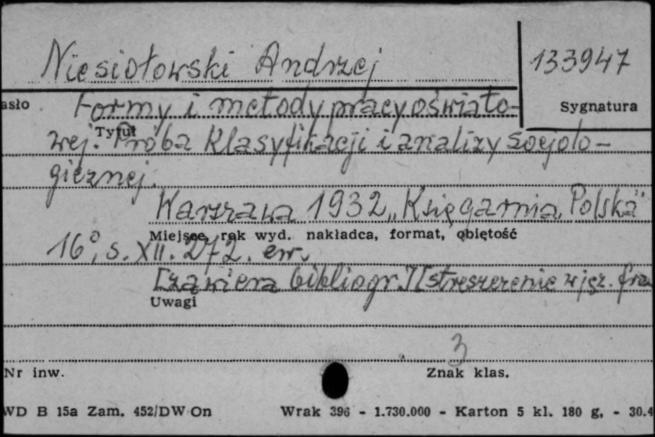 Niesiołowski Andrzej
133947
asło
Sygnatura
Formy i metody pracy oświato-
Tytuł
wej. Próba klasyfikacji i analizy socjolo-
gicznej.
Warszawa 1932 „Księgarnia Polska"
Miejsce, rok wyd. nakładca, format, objętość
16°, s. XII. 272. err.
[zawiera bibliogr.] [streszczenie w jęz. fra
Uwagi
3
Nr inw.
Znak klas.
WD B 15a Zam. 452/DW On
Wrak 396 - 1.730.000 - Karton 5 kl. 180 g. - 30.4